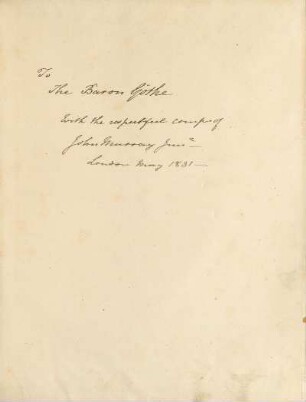 To
The Baron Göthe
with the respectful comps of
John Murray Junr
London May 1831